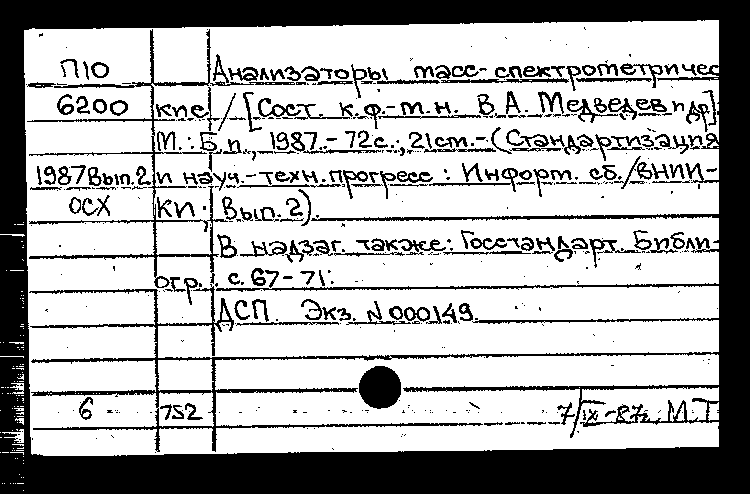 П10 Анализаторы масс-спектрометричес
6200 кие / [Сост. к.ф.-м.н. В.А. Медведев и др]
М.: Б.и., 1987.-72с.; 21см.-(Стандартизация
1987 Вып.2 и науч.-техн.прогресс: Информ. сб./ВНИИ-
ОСХ КИ; Вып. 2).
В надзаг. также: Госстандарт. Библи-
огр.: с. 67-71.
ДСП. Экз. N 000149.
6 752 7/IX-87г. М.Т